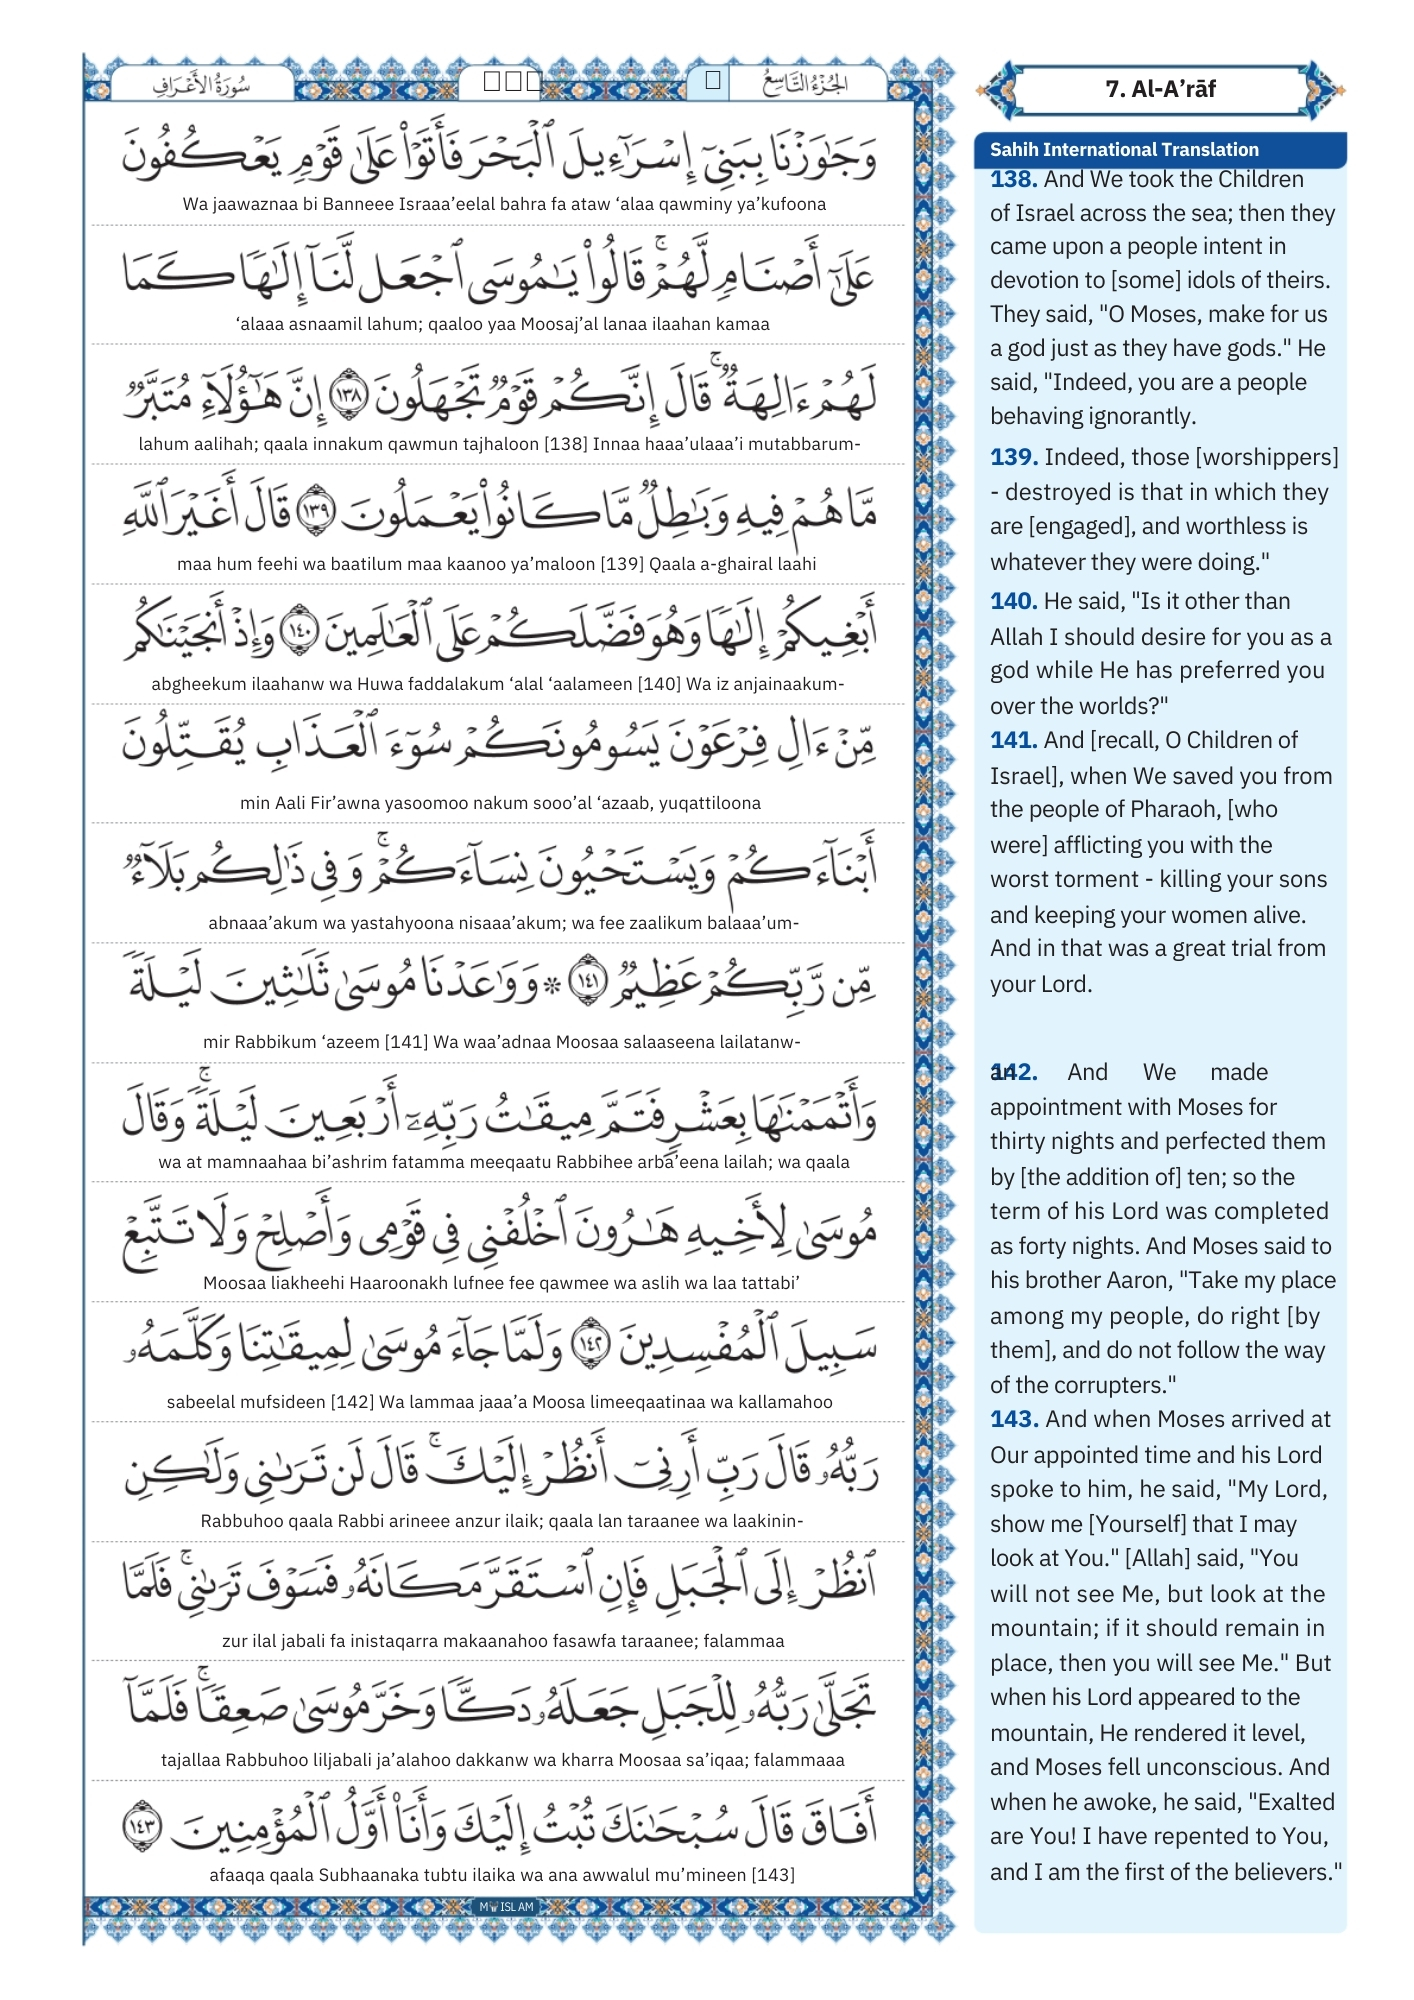 سُورَةُ الأَعْرَافِ
الجُزْءُ التَّاسِعُ
وَجَٰوَزْنَا بِبَنِىٓ إِسْرَٰٓءِيلَ ٱلْبَحْرَ فَأَتَوْا۟ عَلَىٰ قَوْمٍ يَعْكُفُونَ
Wa jaawaznaa bi Banneee Israaa’eelal bahra fa ataw ‘alaa qawminy ya’kufoona
عَلَىٰٓ أَصْنَامٍ لَّهُمْ ۚ قَالُوا۟ يَٰمُوسَى ٱجْعَل لَّنَآ إِلَٰهًا كَمَا
‘alaaa asnaamil lahum; qaaloo yaa Moosaj’al lanaa ilaahan kamaa
لَهُمْ ءَالِهَةٌ ۚ قَالَ إِنَّكُمْ قَوْمٌ تَجْهَلُونَ ١٣٨ إِنَّ هَٰٓؤُلَآءِ مُتَبَّرٌ
lahum aalihah; qaala innakum qawmun tajhaloon [138] Innaa haaa’ulaaa’i mutabbarum-
مَّا هُمْ فِيهِ وَبَٰطِلٌ مَّا كَانُوا۟ يَعْمَلُونَ ١٣٩ قَالَ أَغَيْرَ ٱللَّهِ
maa hum feehi wa baatilum maa kaanoo ya’maloon [139] Qaala a-ghairal laahi
أَبْغِيكُمْ إِلَٰهًا وَهُوَ فَضَّلَكُمْ عَلَى ٱلْعَٰلَمِينَ ١٤٠ وَإِذْ أَنجَيْنَٰكُم
abgheekum ilaahanw wa Huwa faddalakum ‘alal ‘aalameen [140] Wa iz anjainaakum-
مِّنْ ءَالِ فِرْعَوْنَ يَسُومُونَكُمْ سُوٓءَ ٱلْعَذَابِ يُقَتِّلُونَ
min Aali Fir’awna yasoomoo nakum sooo’al ‘azaab, yuqattiloona
أَبْنَآءَكُمْ وَيَسْتَحْيُونَ نِسَآءَكُمْ ۚ وَفِى ذَٰلِكُم بَلَآءٌ
abnaaa’akum wa yastahyoona nisaaa’akum; wa fee zaalikum balaaa’um-
مِّن رَّبِّكُمْ عَظِيمٌ ١٤١ * وَوَٰعَدْنَا مُوسَىٰ ثَلَٰثِينَ لَيْلَةً
mir Rabbikum ‘azeem [141] Wa waa’adnaa Moosaa salaaseena lailatanw-
وَأَتْمَمْنَٰهَا بِعَشْرٍ فَتَمَّ مِيقَٰتُ رَبِّهِۦٓ أَرْبَعِينَ لَيْلَةً ۚ وَقَالَ
wa at mamnaahaa bi’ashrim fatamma meeqaatu Rabbihee arba’eena lailah; wa qaala
مُوسَىٰ لِأَخِيهِ هَٰرُونَ ٱخْلُفْنِى فِى قَوْمِى وَأَصْلِحْ وَلَا تَتَّبِعْ
Moosaa liakheehi Haaroonakh lufnee fee qawmee wa aslih wa laa tattabi’
سَبِيلَ ٱلْمُفْسِدِينَ ١٤٢ وَلَمَّا جَآءَ مُوسَىٰ لِمِيقَٰتِنَا وَكَلَّمَهُۥ
sabeelal mufsideen [142] Wa lammaa jaaa’a Moosa limeeqaatinaa wa kallamahoo
رَبُّهُۥ قَالَ رَبِّ أَرِنِىٓ أَنظُرْ إِلَيْكَ ۚ قَالَ لَن تَرَىٰنِى وَلَٰكِنِ
Rabbuhoo qaala Rabbi arineee anzur ilaik; qaala lan taraanee wa laakinin-
ٱنظُرْ إِلَى ٱلْجَبَلِ فَإِنِ ٱسْتَقَرَّ مَكَانَهُۥ فَسَوْفَ تَرَىٰنِى ۚ فَلَمَّا
zur ilal jabali fa inistaqarra makaanahoo fasawfa taraanee; falammaa
تَجَلَّىٰ رَبُّهُۥ لِلْجَبَلِ جَعَلَهُۥ دَكًّا وَخَرَّ مُوسَىٰ صَعِقًا ۚ فَلَمَّآ
tajallaa Rabbuhoo liljabali ja’alahoo dakkanw wa kharra Moosaa sa’iqaa; falammaaa
أَفَاقَ قَالَ سُبْحَٰنَكَ تُبْتُ إِلَيْكَ وَأَنَا۠ أَوَّلُ ٱلْمُؤْمِنِينَ ١٤٣
afaaqa qaala Subhaanaka tubtu ilaika wa ana awwalul mu’mineen [143]
7. Al-A’rāf
Sahih International Translation
138. And We took the Children
of Israel across the sea; then they
came upon a people intent in
devotion to [some] idols of theirs.
They said, "O Moses, make for us
a god just as they have gods." He
said, "Indeed, you are a people
behaving ignorantly.
139. Indeed, those [worshippers]
- destroyed is that in which they
are [engaged], and worthless is
whatever they were doing."
140. He said, "Is it other than
Allah I should desire for you as a
god while He has preferred you
over the worlds?"
141. And [recall, O Children of
Israel], when We saved you from
the people of Pharaoh, [who
were] afflicting you with the
worst torment - killing your sons
and keeping your women alive.
And in that was a great trial from
your Lord.
142. And We made
an
appointment with Moses for
thirty nights and perfected them
by [the addition of] ten; so the
term of his Lord was completed
as forty nights. And Moses said to
his brother Aaron, "Take my place
among my people, do right [by
them], and do not follow the way
of the corrupters."
143. And when Moses arrived at
Our appointed time and his Lord
spoke to him, he said, "My Lord,
show me [Yourself] that I may
look at You." [Allah] said, "You
will not see Me, but look at the
mountain; if it should remain in
place, then you will see Me." But
when his Lord appeared to the
mountain, He rendered it level,
and Moses fell unconscious. And
when he awoke, he said, "Exalted
are You! I have repented to You,
and I am the first of the believers."